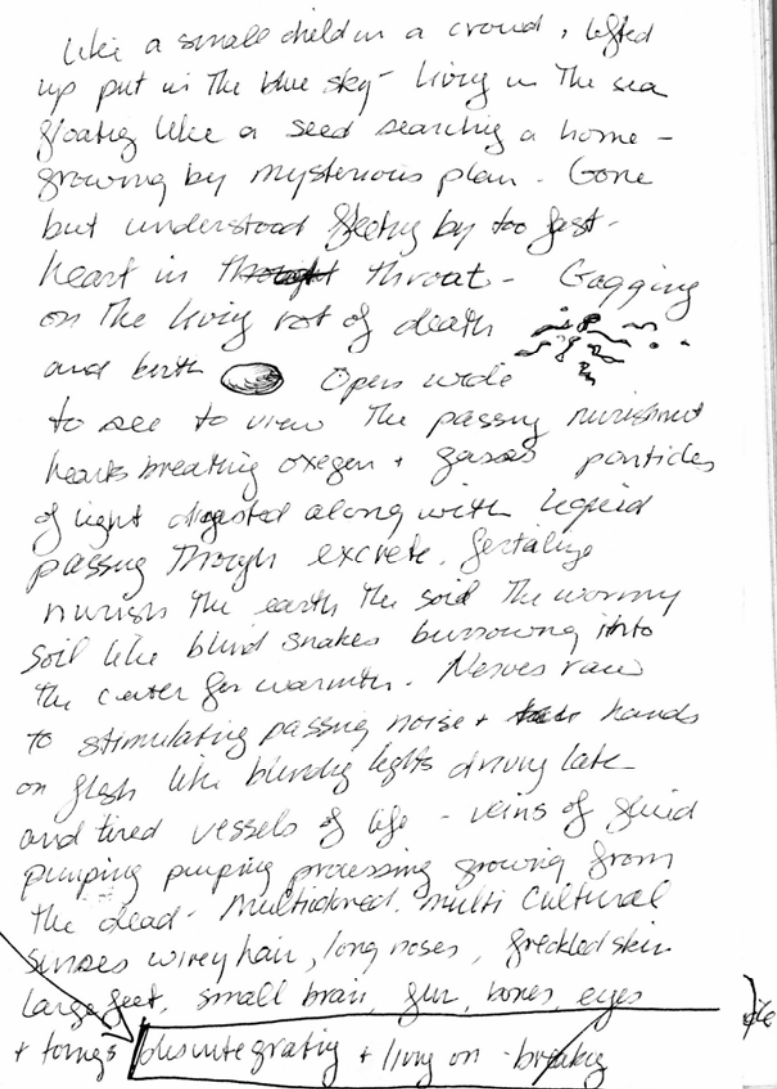 like a small child in a crowd, lifted
up put in the blue sky - living in the sea
floating like a seed searching a home -
growing by mysterious plan. Gone
but understood fleeting by too fast -
heart in throat - Gagging
on the living rot of death
and birth Open wide
to see to view the passing nurishment
hearts breathing oxegen + gasses particles
of light digested along with liquid
passing through excrete, fertalize
nurish the earth the soil the wormy
soil like blind snakes burrowing into
the center for warmth. Nerves raw
to stimulating passing noise + hands
on flesh like blinding lights driving late
and tired vessels of life - veins of fluid
pumping pumping processing growing from
the dead - multi cultural
senses wirey hair, long noses, freckled skin
large feet, small brain, fur, bones, eyes
+ disintegrating + living on - breaking